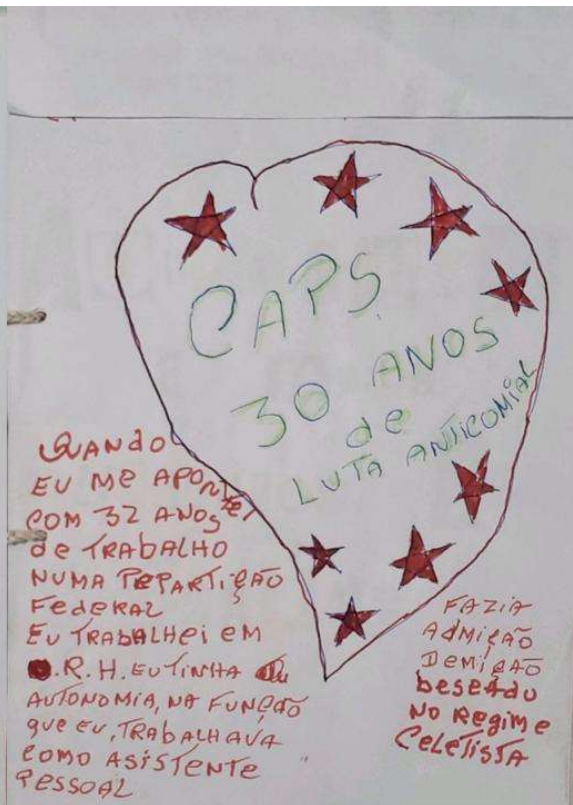 CAPS
30 ANOS
de
LUTA ANTICOMIAL
QUANdO
EU Me APONTEI
COM 32 ANOS
de TRAbALHO
NUMA REPARTIÇÃO
FedeRAL
EU TRAbALHei eM
R.H. EU TINHA
AUTONOMIA, NA FUNÇÃO
que EU, TRAbALHAVA
COMO ASiSTENTE
PESSOAL
FAZIA
ADMIÇÃO
DEMIÇÃO
beseAdo
NO Regime
CeLeTISTA